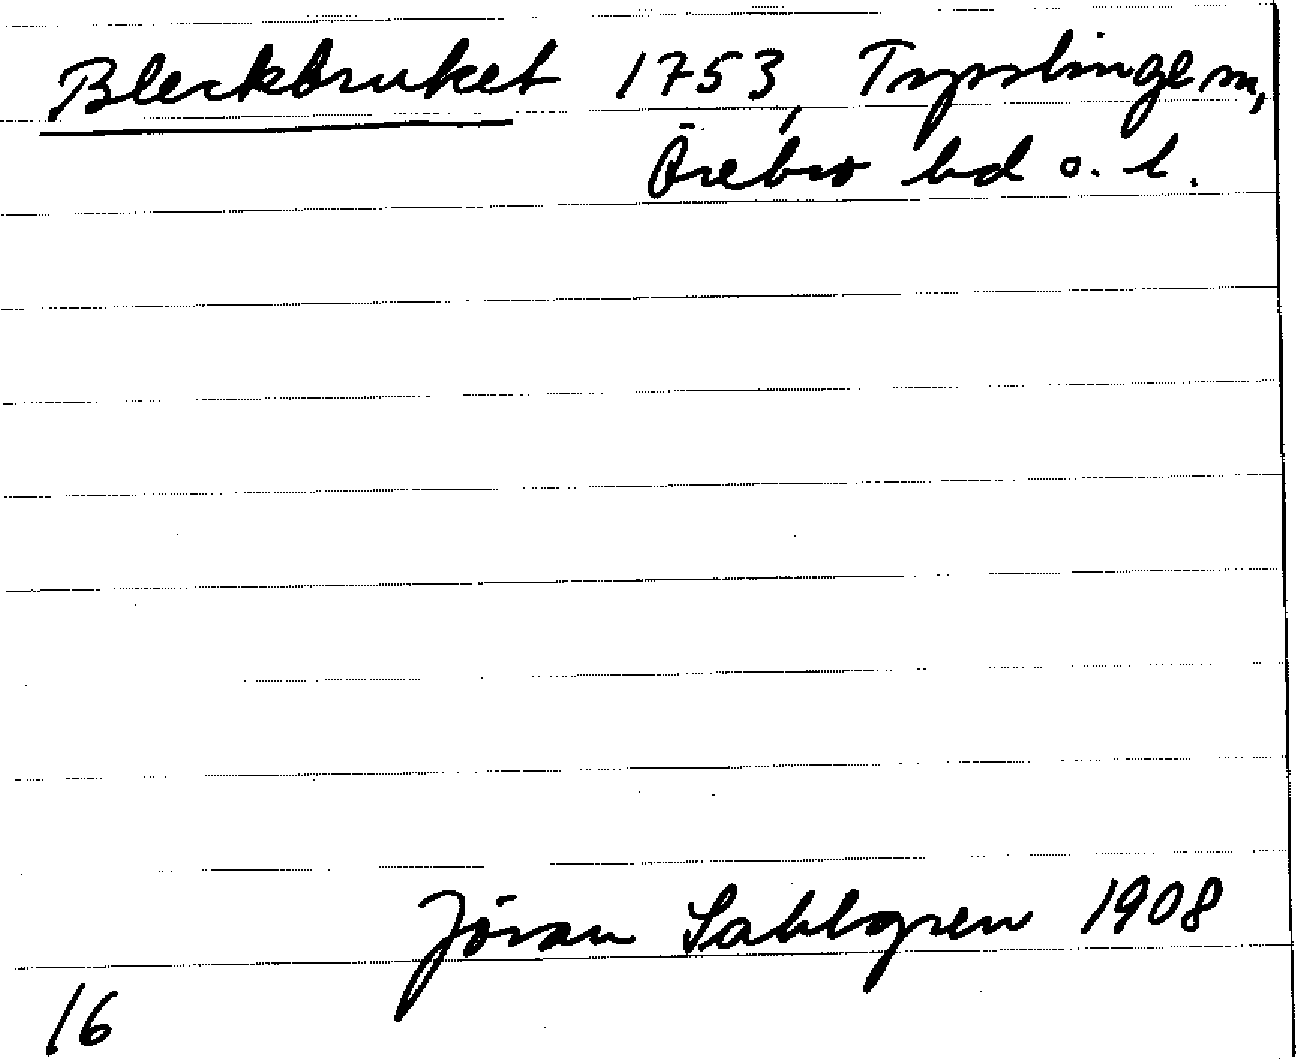 Bleckbruket 1753, Tysslinge sn,
Örebro hd o. l.
Jöran Sahlgren 1908
16